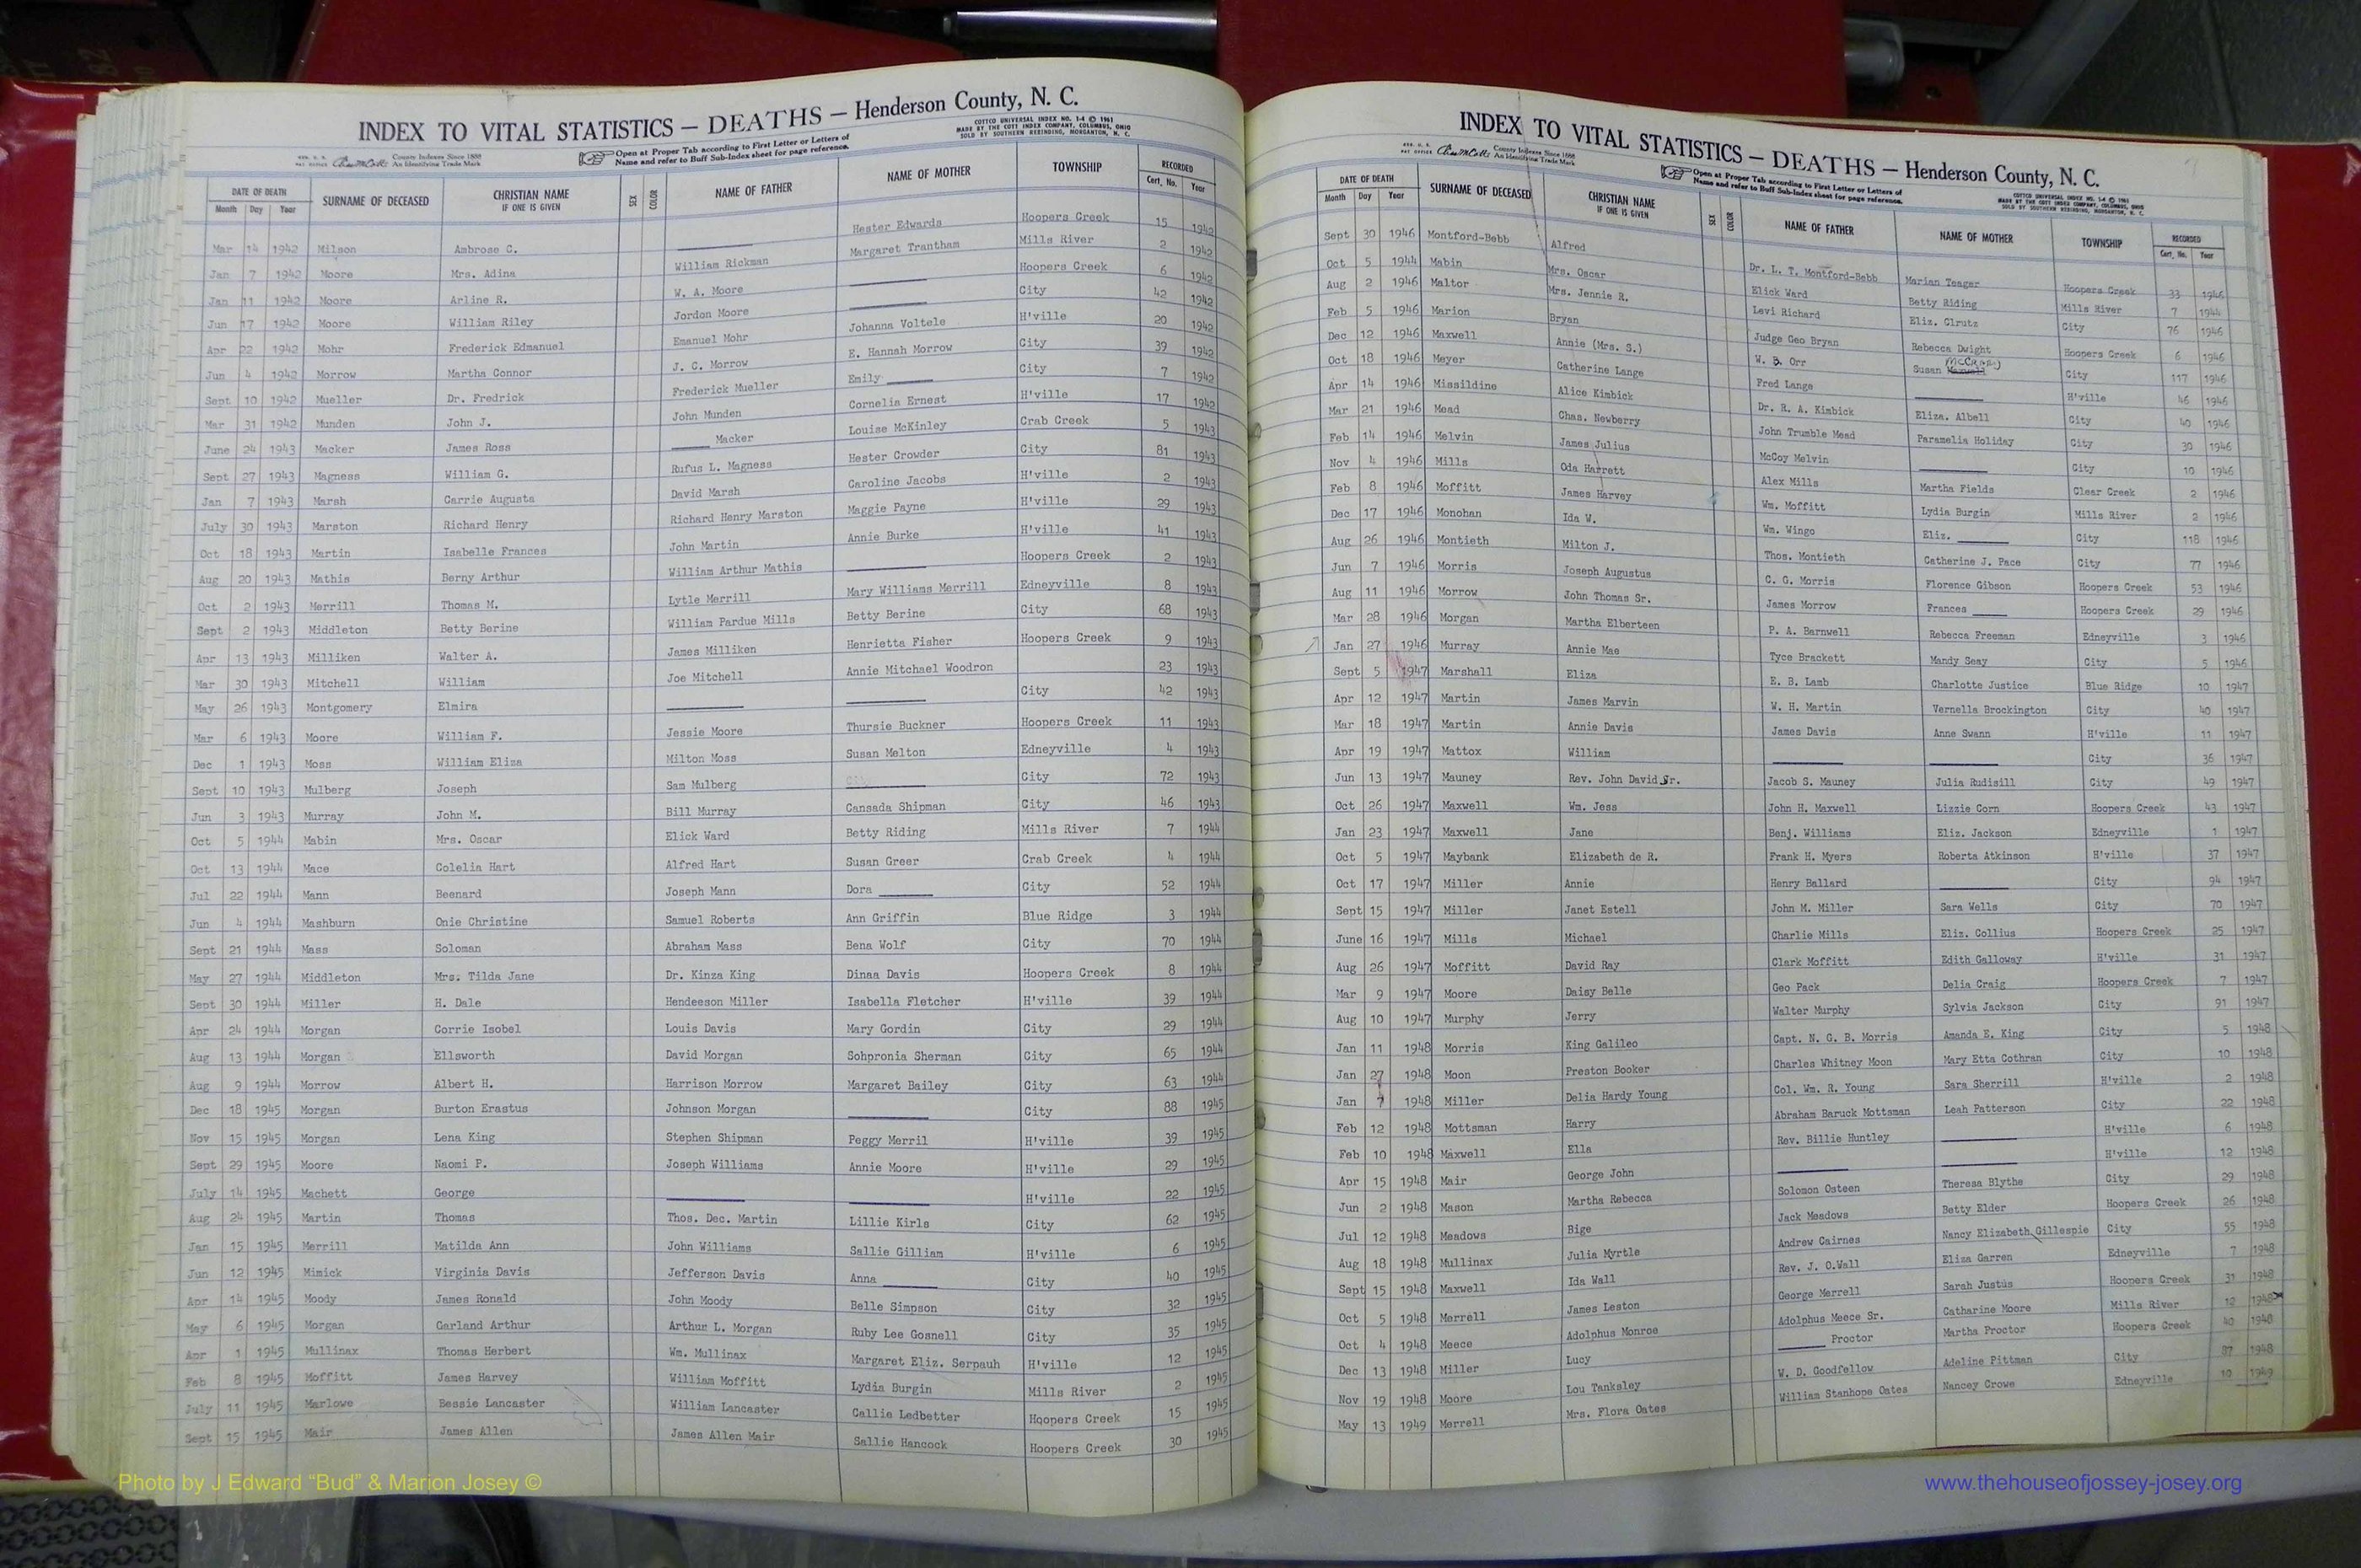 INDEX TO VITAL STATISTICS — DEATHS — Henderson County, N. C.
COTTCO UNIVERSAL INDEX NO. 1-4 © 1961
MADE BY THE COTT INDEX COMPANY, COLUMBUS, OHIO
SOLD BY SOUTHERN REBINDING, MORGANTON, N. C.
County Indexes Since 1888
An Identifying Trade Mark
Open at Proper Tab according to First Letter or Letters of
Name and refer to Buff Sub-Index sheet for page reference.
DATE OF DEATH SURNAME OF DECEASED CHRISTIAN NAME IF ONE IS GIVEN SEX COLOR NAME OF FATHER NAME OF MOTHER TOWNSHIP RECORDED
Month Day Year Cert. No. Year
Mar 14 1942 Milson Ambrose C. Hester Edwards Hoopers Creek 15 1942
Jan 7 1942 Moore Mrs. Adina William Rickman Margaret Trantham Mills River 2 1942
Jan 11 1942 Moore Arline R. W. A. Moore Hoopers Creek 6 1942
Jun 17 1942 Moore William Riley Jordon Moore City 42 1942
Apr 22 1942 Mohr Frederick Edmanuel Emanuel Mohr Johanna Voltele H'ville 20 1942
Jun 4 1942 Morrow Martha Connor J. C. Morrow E. Hannah Morrow City 39 1942
Sept 10 1942 Mueller Dr. Fredrick Frederick Mueller Emily City 7 1942
Mar 31 1942 Munden John J. John Munden Cornelia Ernest H'ville 17 1942
June 24 1943 Macker James Ross Macker Louise McKinley Crab Creek 5 1943
Sept 27 1943 Magness William G. Rufus L. Magness Hester Crowder City 81 1943
Jan 7 1943 Marsh Carrie Augusta David Marsh Caroline Jacobs H'ville 2 1943
July 30 1943 Marston Richard Henry Richard Henry Marston Maggie Payne H'ville 29 1943
Oct 18 1943 Martin Isabelle Frances John Martin Annie Burke H'ville 41 1943
Aug 20 1943 Mathis Berny Arthur William Arthur Mathis Hoopers Creek 2 1943
Oct 2 1943 Merrill Thomas M. Lytle Merrill Mary Williams Merrill Edneyville 8 1943
Sept 2 1943 Middleton Betty Berine William Pardue Mills Betty Berine City 68 1943
Apr 13 1943 Milliken Walter A. James Milliken Henrietta Fisher Hoopers Creek 9 1943
Mar 30 1943 Mitchell William Joe Mitchell Annie Mitchael Woodron 23 1943
May 26 1943 Montgomery Elmira City 42 1943
Mar 6 1943 Moore William F. Jessie Moore Thursie Buckner Hoopers Creek 11 1943
Dec 1 1943 Moss William Eliza Milton Moss Susan Melton Edneyville 4 1943
Sept 10 1943 Mulberg Joseph Sam Mulberg City 72 1943
Jun 3 1943 Murray John M. Bill Murray Cansada Shipman City 46 1943
Oct 5 1944 Mabin Mrs. Oscar Elick Ward Betty Riding Mills River 7 1944
Oct 13 1944 Mace Colelia Hart Alfred Hart Susan Greer Crab Creek 4 1944
Jul 22 1944 Mann Beenard Joseph Mann Dora City 52 1944
Jun 4 1944 Mashburn Onie Christine Samuel Roberts Ann Griffin Blue Ridge 3 1944
Sept 21 1944 Mass Soloman Abraham Mass Bena Wolf City 70 1944
May 27 1944 Middleton Mrs. Tilda Jane Dr. Kinza King Dinaa Davis Hoopers Creek 8 1944
Sept 30 1944 Miller H. Dale Hendeeson Miller Isabella Fletcher H'ville 39 1944
Apr 24 1944 Morgan Corrie Isobel Louis Davis Mary Gordin City 29 1944
Aug 13 1944 Morgan Ellsworth David Morgan Sohpronia Sherman City 65 1944
Aug 9 1944 Morrow Albert H. Harrison Morrow Margaret Bailey City 63 1944
Dec 18 1945 Morgan Burton Erastus Johnson Morgan City 88 1945
Nov 15 1945 Morgan Lena King Stephen Shipman Peggy Merril H'ville 39 1945
Sept 29 1945 Moore Naomi P. Joseph Williams Annie Moore H'ville 29 1945
July 14 1945 Machett George H'ville 22 1945
Aug 24 1945 Martin Thomas Thos. Dec. Martin Lillie Kirls City 62 1945
Jan 15 1945 Merrill Matilda Ann John Williams Sallie Gilliam H'ville 6 1945
Jun 12 1945 Mimick Virginia Davis Jefferson Davis Anna City 40 1945
Apr 14 1945 Moody James Ronald John Moody Belle Simpson City 32 1945
May 6 1945 Morgan Garland Arthur Arthur L. Morgan Ruby Lee Gosnell City 35 1945
Apr 1 1945 Mullinax Thomas Herbert Wm. Mullinax Margaret Eliz. Serpauh H'ville 12 1945
Feb 8 1945 Moffitt James Harvey William Moffitt Lydia Burgin Mills River 2 1945
July 11 1945 Marlowe Bessie Lancaster William Lancaster Callie Ledbetter Hqopers Creek 15 1945
Sept 15 1945 Mair James Allen James Allen Mair Sallie Hancock Hoopers Creek 30 1945
INDEX TO VITAL STATISTICS — DEATHS — Henderson County, N. C.
County Indexes Since 1888
An Identifying Trade Mark
Open at Proper Tab according to First Letter or Letters of
Name and refer to Buff Sub-Index sheet for page reference.
COTTCO UNIVERSAL INDEX NO. 1-4 © 1961
MADE BY THE COTT INDEX COMPANY, COLUMBUS, OHIO
SOLD BY SOUTHERN REBINDING, MORGANTON, N. C.
DATE OF DEATH SURNAME OF DECEASED CHRISTIAN NAME IF ONE IS GIVEN SEX COLOR NAME OF FATHER NAME OF MOTHER TOWNSHIP RECORDED
Month Day Year Cert. No. Year
Sept 30 1946 Montford-Bebb Alfred Dr. L. T. Montford-Bebb Marian Teager Hoopers Creek 33 1946
Oct 5 1944 Mabin Mrs. Oscar Elick Ward Betty Riding Mills River 7 1944
Aug 2 1946 Maltor Mrs. Jennie R. Levi Richard Eliz. Clrutz City 76 1946
Feb 5 1946 Marion Bryan Judge Geo Bryan Rebecca Dwight Hoopers Creek 6 1946
Dec 12 1946 Maxwell Annie (Mrs. S.) W. B. Orr Susan Maxwell McCrary City 117 1946
Oct 18 1946 Meyer Catherine Lange Fred Lange H'ville 46 1946
Apr 14 1946 Missildine Alice Kimbick Dr. R. A. Kimbick Eliza. Albell City 40 1946
Mar 21 1946 Mead Chas. Newberry John Trumble Mead Paramelia Holiday City 30 1946
Feb 14 1946 Melvin James Julius McCoy Melvin City 10 1946
Nov 4 1946 Mills Oda Harrett Alex Mills Martha Fields Clear Creek 2 1946
Feb 8 1946 Moffitt James Harvey Wm. Moffitt Lydia Burgin Mills River 2 1946
Dec 17 1946 Monohan Ida W. Wm. Wingo Eliz. City 118 1946
Aug 26 1946 Montieth Milton J. Thos. Montieth Catherine J. Pace City 77 1946
Jun 7 1946 Morris Joseph Augustus C. G. Morris Florence Gibson Hoopers Creek 53 1946
Aug 11 1946 Morrow John Thomas Sr. James Morrow Frances Hoopers Creek 29 1946
Mar 28 1946 Morgan Martha Elberteen P. A. Barnwell Rebecca Freeman Edneyville 3 1946
Jan 27 1946 Murray Annie Mae Tyce Brackett Mandy Seay City 5 1946
Sept 5 1947 Marshall Eliza E. B. Lamb Charlotte Justice Blue Ridge 10 1947
Apr 12 1947 Martin James Marvin W. H. Martin Vernella Brockington City 40 1947
Mar 18 1947 Martin Annie Davis James Davis Anne Swann H'ville 11 1947
Apr 19 1947 Mattox William City 36 1947
Jun 13 1947 Mauney Rev. John David Sr. Jacob S. Mauney Julia Rudisill City 49 1947
Oct 26 1947 Maxwell Wm. Jess John H. Maxwell Lizzie Corn Hoopers Creek 43 1947
Jan 23 1947 Maxwell Jane Benj. Williams Eliz. Jackson Edneyville 1 1947
Oct 5 1947 Maybank Elizabeth de R. Frank H. Myers Roberta Atkinson H'ville 37 1947
Oct 17 1947 Miller Annie Henry Ballard City 94 1947
Sept 15 1947 Miller Janet Estell John M. Miller Sara Wells City 70 1947
June 16 1947 Mills Michael Charlie Mills Eliz. Collius Hoopers Creek 25 1947
Aug 26 1947 Moffitt David Ray Clark Moffitt Edith Galloway H'ville 31 1947
Mar 9 1947 Moore Daisy Belle Geo Pack Delia Craig Hoopers Creek 7 1947
Aug 10 1947 Murphy Jerry Walter Murphy Sylvia Jackson City 91 1947
Jan 11 1948 Morris King Galileo Capt. N. G. B. Morris Amanda E. King City 5 1948
Jan 27 1948 Moon Preston Booker Charles Whitney Moon Mary Etta Cothran City 10 1948
Jan 7 1948 Miller Delia Hardy Young Col. Wm. R. Young Sara Sherrill H'ville 2 1948
Feb 12 1948 Mottsman Harry Abraham Baruck Mottsman Leah Patterson City 22 1948
Feb 10 1948 Maxwell Ella Rev. Billie Huntley H'ville 6 1948
Apr 15 1948 Mair George John H'ville 12 1948
Jun 2 1948 Mason Martha Rebecca Solomon Osteen Theresa Blythe City 29 1948
Jul 12 1948 Meadows Bige Jack Meadows Betty Elder Hoopers Creek 26 1948
Aug 18 1948 Mullinax Julia Myrtle Andrew Cairnes Nancy Elizabeth Gillespie City 55 1948
Sept 15 1948 Maxwell Ida Wall Rev. J. O.Wall Eliza Garren Edneyville 7 1948
Oct 5 1948 Merrell James Leston George Merrell Sarah Justus Hoopers Creek 31 1948
Oct 4 1948 Meece Adolphus Monroe Adolphus Meece Sr. Catharine Moore Mills River 12 1948
Dec 13 1948 Miller Lucy Proctor Martha Proctor Hoopers Creek 40 1948
Nov 19 1948 Moore Lou Tanksley W. D. Goodfellow Adeline Pittman City 87 1948
May 13 1949 Merrell Mrs. Flora Oates William Stanhope Oates Nancey Crowe Edneyville 10 1949
Photo by J Edward “Bud” & Marion Josey ©
www.thehouseofjossey-josey.org